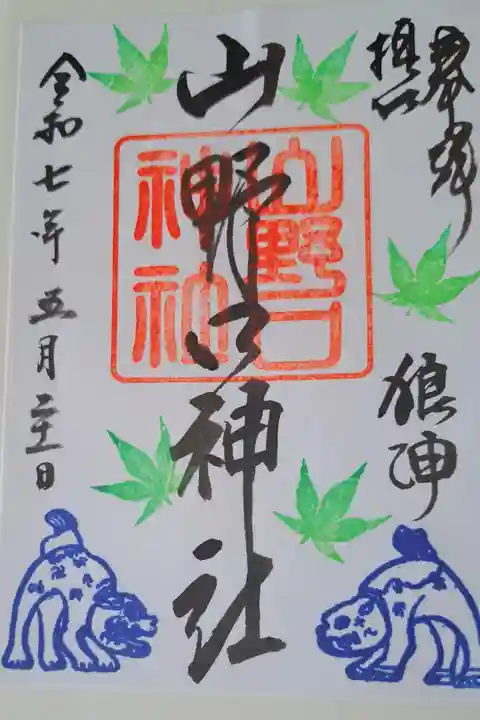 奉拝
狼神
山野口神社
山野口
神社
令和七年五月二十一日